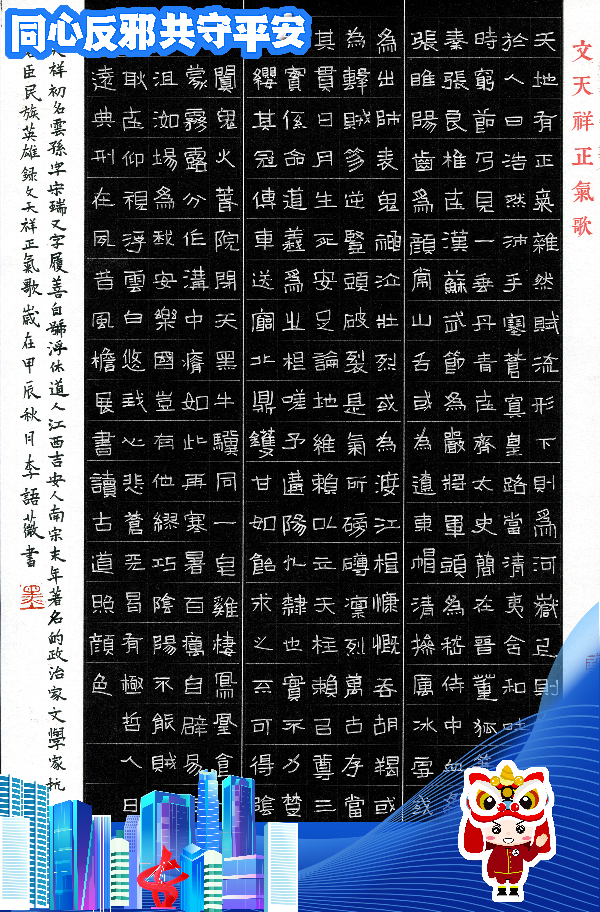 同心反邪共守平安
文天祥正氣歌
天地有正氣雜然賦流形下則為河嶽上則
於人曰浩然沛乎塞蒼冥皇路當清夷含和吐
時窮節乃見一垂丹青在齊太史簡在晉董狐
秦張良椎在漢蘇武節為嚴將軍頭為嵇侍中血
張睢陽齒為顏常山舌或為遼東帽清操厲冰雪或
為出師表鬼神泣壯烈或為渡江楫慷慨吞胡羯或
為擊賊笏逆豎頭破裂是氣所磅礴凜烈萬古存當
其貫日月生死安足論地維賴以立天柱賴以尊三
實係命道義為之根嗟予遘陽九隸也實不力楚
纓其冠傳車送窮北鼎鑊甘如飴求之不可得陰
闃鬼火春院閟天黑牛驥同一皂雞棲鳳凰食
蒙霧露分作溝中瘠如此再寒暑百癘自辟易
沮洳場為我安樂國豈有他繆巧陰陽不能賊
耿在仰視浮雲白悠我心悲蒼天曷有極哲人日
遠典刑在夙昔風簷展書讀古道照顏色
祥初名雲孫字宋瑞又字履善自號浮休道人江西吉安人南宋末年著名的政治家文學家杭
臣民族英雄錄文天祥正氣歌歲在甲辰秋月李語薇書